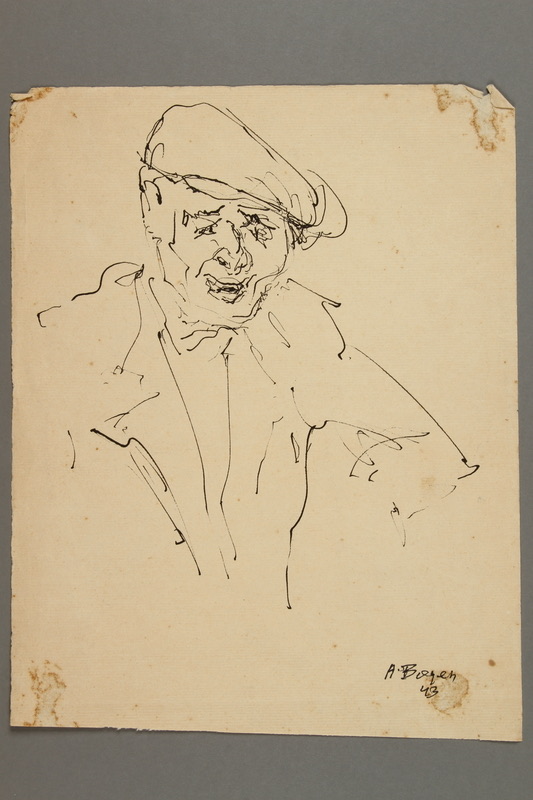 A. Bogen
43